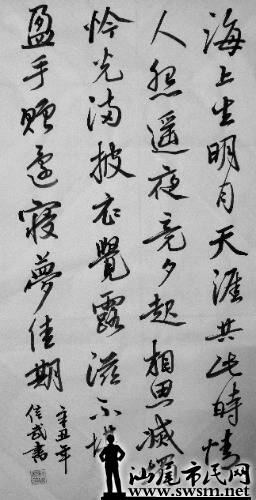 海上生明月天涯共此時情
人怨遥夜竟夕起相思滅燭
怜光满披衣覺露滋不堪
盈手贈還寢夢佳期
辛丑年
信武書
汕尾市民网
www.swsm.net